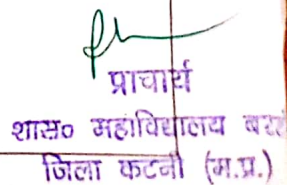 प्राचार्य
शास० महाविद्यालय
जिला कटनी (म.प्र.)